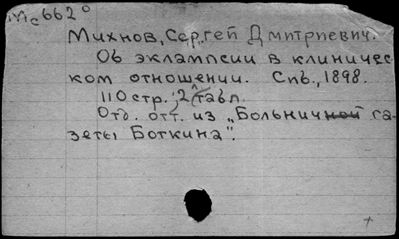 Мс662⁰
Михнов, Сергей Дмитриевич.
Об эклампсии в клиничес-
ком отношении. Спб., 1898.
110 стр.; 2 табл.
Отд. отт. из „Больничной га-
зеты Боткина".